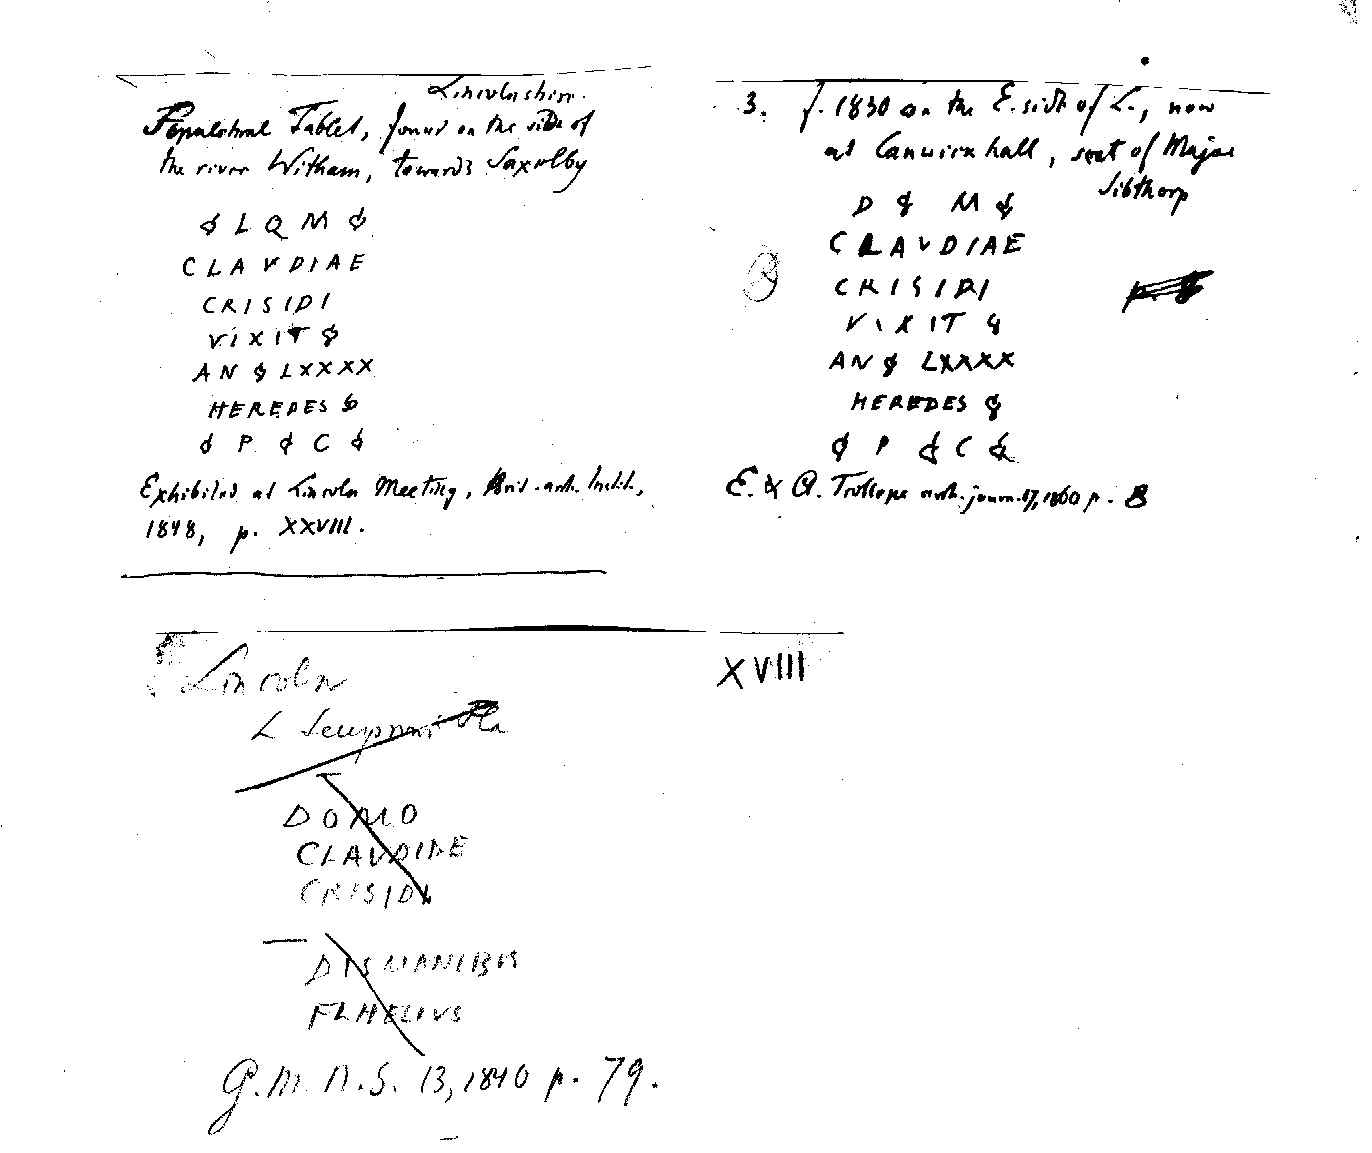 Lincolnshire.
Sepulchral Tablet, found on the side of
the river Witham, towards Saxelby
L Q M
CLAVDIAE
CRISIDI
VIXIT
AN LXXXX
HEREDES
P C
Exhibited at Lincoln Meeting, Brit. arch. Instit.,
1848, p. XXVIII.
3. f. 1830 on the E. side of L., now
at Canwick hall, seat of Major
Sibthorp
D M
CLAVDIAE
CRISIDI
VIXIT
AN LXXXX
HEREDES
P C
E. Trollope arch. journ. 17, 1860 p. 8
Lincoln XVIII
L
DOMO
CLAVDIAE
CRISIDI
DIS MANIBVS
FL HELIVS
G. M. N. S. 13, 1840 p. 79.